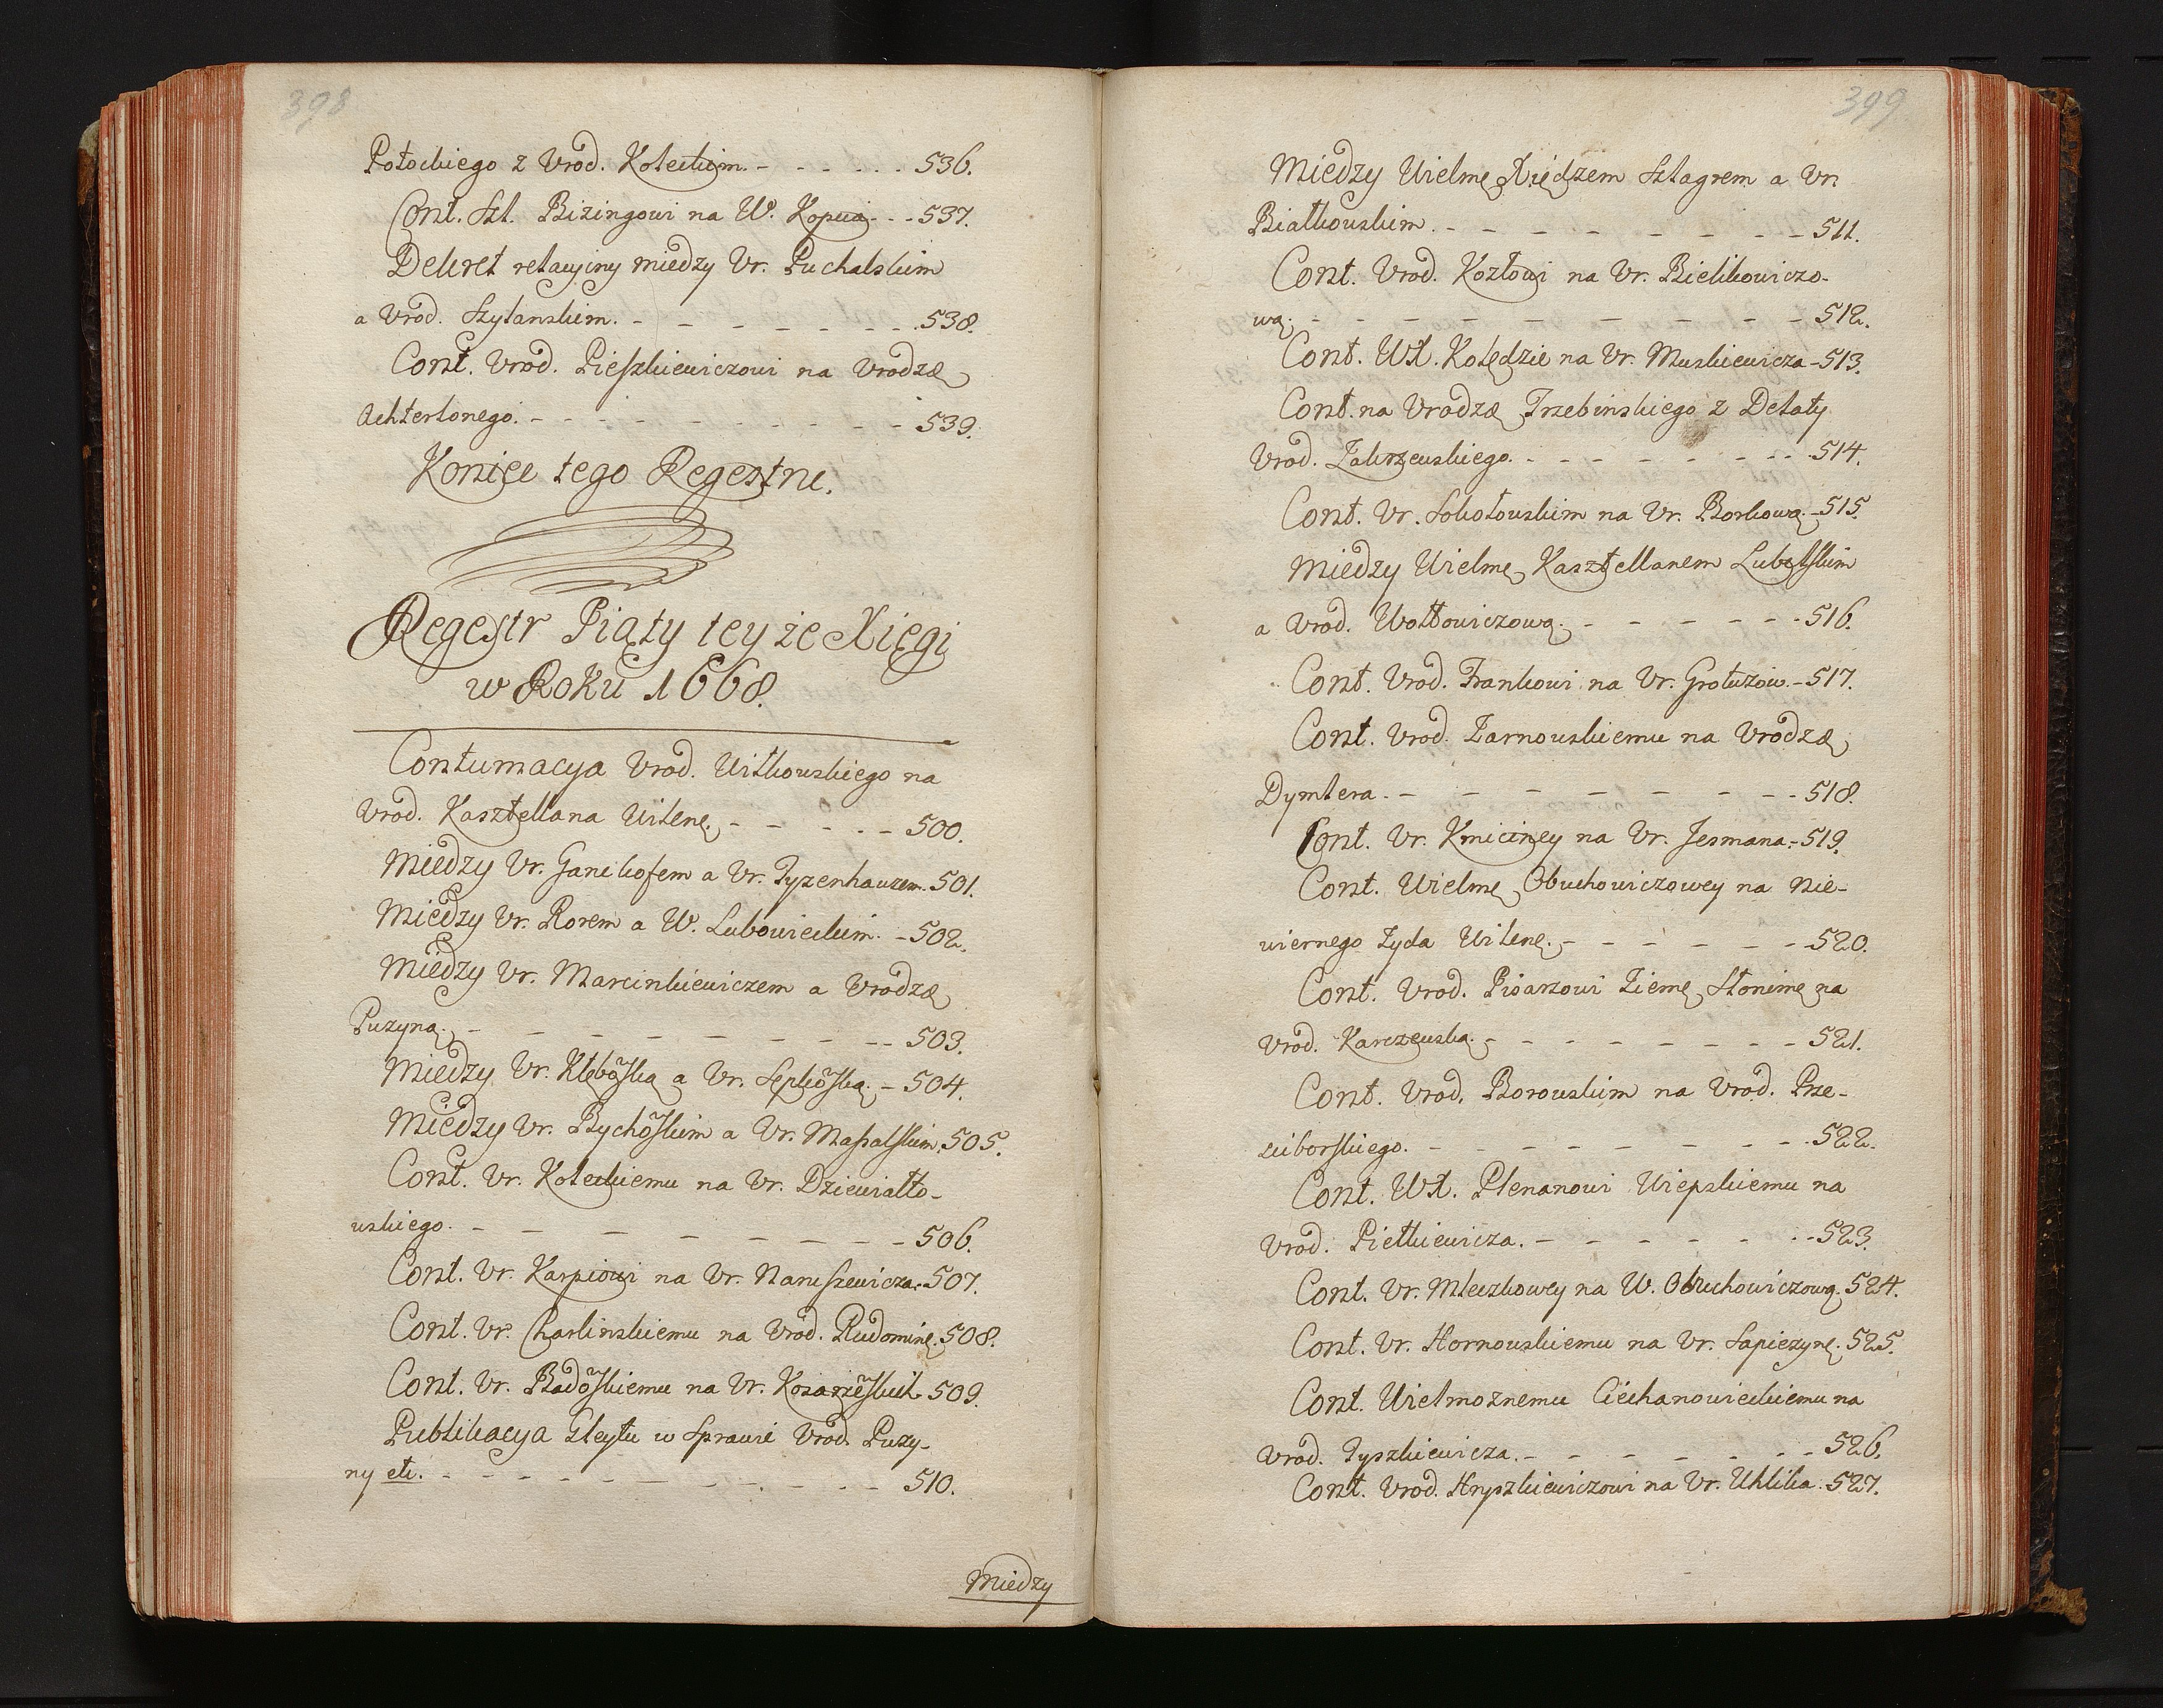 398
Potockiego z Vrod. Koleckim. - - - - - - 536.
Cont. Szl. Bizingowi na W. Kopuią - - - 537.
Dekret relacyiny miedzy Vr. Puchalskim
a Vrod. Szylanskim. - - - - - - - - - 538.
Cont. Vrod. Pieszkiewiczowi na Vrodzę
Achterlonego. - - - - - - - - - - 539.
Koniec tego Regestru.
Regestr Piąty teyże Xięgi
w Roku 1668.
Contumacya Vrod. Witkowskiego na
Vrod. Kasztellana Wilenę. - - - - - - 500.
Miedzy Vr. Ganikofem a Vr. Tyzenhauzem. 501.
Miedzy Vr. Rorem a W. Lubowieckim. - 502.
Miedzy Vr. Marcinkiewiczem a Vrodzę
Puzyną. - - - - - - - - - - 503.
Miedzy Vr. Klebõską a Vr. Sepkõską. - 504.
Miedzy Vr. Bychõskim a Vr. Massalskim. 505.
Cont. Vr. Koleckiemu na Vr. Dziewiałto-
wskiego. - - - - - - - - - 506.
Cont. Vr. Karpiowi na Vr. Naruszewicza. 507.
Cont. Vr. Charlinskiemu na Vrod. Rudominę. 508.
Cont. Vr. Badõskiemu na Vr. Kozarzẽskich. 509.
Publikacya Gleytu w Sprawie Vrod. Puzy-
ny etc. - - - - - - - - - - - 510.
Miedzy
399
Miedzy Wielmę Xiędzem Szlagrem a Vr.
Białkowskim. - - - - - - - - - 511.
Cont. Vrod. Kozłowi na Vr. Bielikowiczo-
wą. - - - - - - - - - - - 512.
Cont. WX. Kolędzie na Vr. Muskiewicza - 513.
Cont. na Vrodzę Trzebinskiego z Delaty
Vrod. Zakrzewskiego. - - - - - - - - - 514.
Cont. Vr. Sokołowskim na Vr. Borkową. - 515.
Miedzy Wielmę Kasztellanem Lubelskim
a Vrod. Wołłowiczową. - - - - - - - 516.
Cont. Vrod. Frankowi na Vr. Grotuzow. - 517.
Cont. Vrod. Żarnowskiemu na Vrodzę
Dymtera. - - - - - - - - - 518.
Cont. Vr. Kmiciney na Vr. Jesmana. - 519.
Cont. Wielmę Obuchowiczowey na Nie-
wiernego Zyda Wilenę. - - - - - - - 520.
Cont. Vrod. Pisarzowi Ziemę Słonimę na
Vrod. Karczewską. - - - - - - - - 521.
Cont. Vrod. Borowskim na Vrod. Prze-
ciborskiego. - - - - - - - - - 522.
Cont. WX. Plenanowi Wiepskiemu na
Vrod. Pietkiewicza. - - - - - - - - 523.
Cont. Vr. Mleczkowey na W. Obuchowiczową. 524.
Cont. Vr. Hornowskiemu na Vr. Sapiezynę. 525.
Cont. Wielmoznemu Ciechanowieckiemu na
Vrod. Tyszkiewicza. - - - - - - - - 526.
Cont. Vrod. Hryszkiewiczowi na Vr. Uhlika. 527.